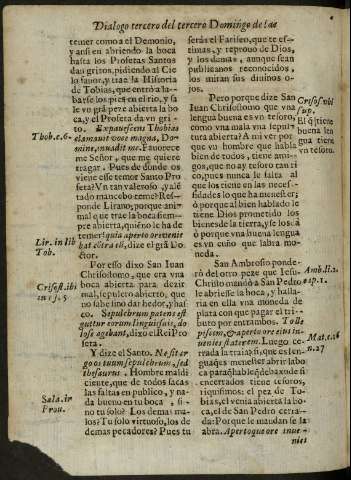 Dialogo tercero del tercero Domingo de las
temer como a el Demonio,
y ansi en abriendo la boca
hasta los Profetas Santos
dan gritos, pidiendo al Cie
lo fauor, y trae la Historia
de Tobias, que entrò a la-
barse los pies en el rio, y sa
le vn grã peze abierta la bo
ca, y el Profeta da vn gri-
to. Expauescens Thobias
Thob. c. 6.
clamauit voce magna, Do-
mine, inuadit me. Fauorece
me Señor, que me quiere
tragar. Pues de donde os
viene esse temor Santo Pro
feta? Vn tan valeroso, y alẽ
tado mancebo teme? Res-
ponde Lirano; porque ani-
mal que trae la boca siem-
pre abierta, quiẽ no le ha de
temer?
Lir. in lib
Tob.
bat, dize el grã Do-
ctor.
Por esso dixo San Iuan
Chrisostomo, que era vna
boca abierta para dezir
Crisost. ibi
in ps. 5
mal, sepulcro abierto, que
no sabe sino dar hedor, y has/
co. Sepulchrum patens est
guttur eorum linguis suis, do
lose agebant, dixo el Rei Pro
feta.
Y dize el Santo. Ne sit er
go os tuum sepulchrum, sed
thesaurus. Hombre maldi
ciente, que de todos sacas
las faltas en publico, y na
da bueno en tu boca, si-
Sala. in
Prou.
no tu solo? Los demas ma-
los? Tu solo virtuoso, los de
mas pecadores? Pues tu
serás el Fariseo, que te es-
timas, y reprouo de Dios,
y los demas, aunque sean
publicanos reconocidos,
los miran sus diuinos o-
jos.
Pero porque dize San
Iuan Chrisostomo que vna
Crisost. vbi
sup.
buena lengua es vn tesoro,
El q̃ tiene
buena len
gua tiene
vn tesoro.
como vna mala vna sepul-
tura abierta? A mi ver por
que vn hombre que habla
bien de todos, tiene ami-
gos, que no ay tesoro tan ri
co, pues nunca le falta al
que los tiene en las neces-
sidades lo que ha menester;
ò porque al bien hablado le
tiene Dios prometido los
bienes de la tierra, y se los dà
ò porque vna buena lengua
es vn cuño que labra mo-
neda.
San Ambrosio ponde-
rò del otro peze que Iesu-
Christo mandò a San Pedro
Amb. li. 2.
ep. 1.
le abriesse la boca, y halla-
ria en ella vna moneda de
plata con que pagar el tri-
buto por entrambos. Tolle
piscem, & aperto ore eius in-
uenies staterem. Luego ce-
Mat. c. 16
n. 27
rrada la traia? si, que es len-
guage mes el abrir la bo
ca para, hablè de
cerrados tiene tesoros,
riquissimos: el pez de To-
bias, el venia abierta la bo-
ca, el de San Pedro cerra-
da: Por que le mandan se la
abra. Aperto que ore inue-
nies